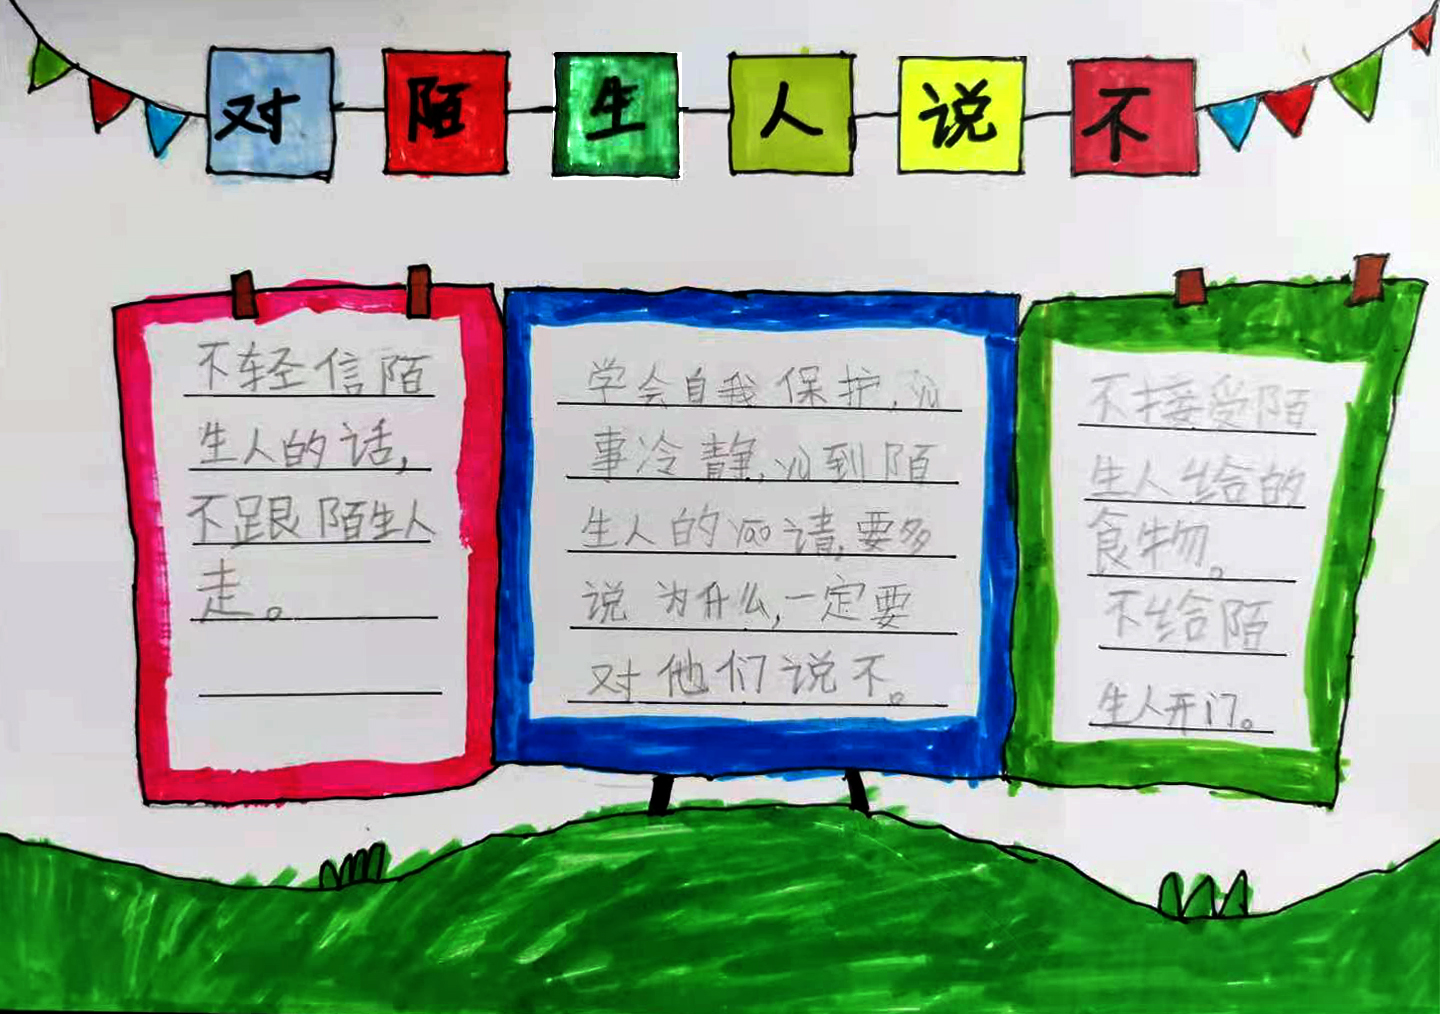 对陌生人说不
不轻信陌
生人的话,
不跟陌生人
走。
学会自我保护,yu
事冷静,yu到陌
生人的yao请,要多
说为什么,一定要
对他们说不。
不接受陌
生人给的
食物。
不给陌
生人开门。